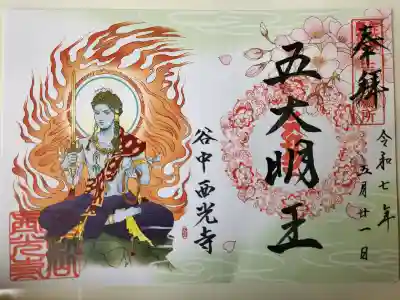 奉拝
五大明王
令和七年
五月廿一日
谷中西光寺